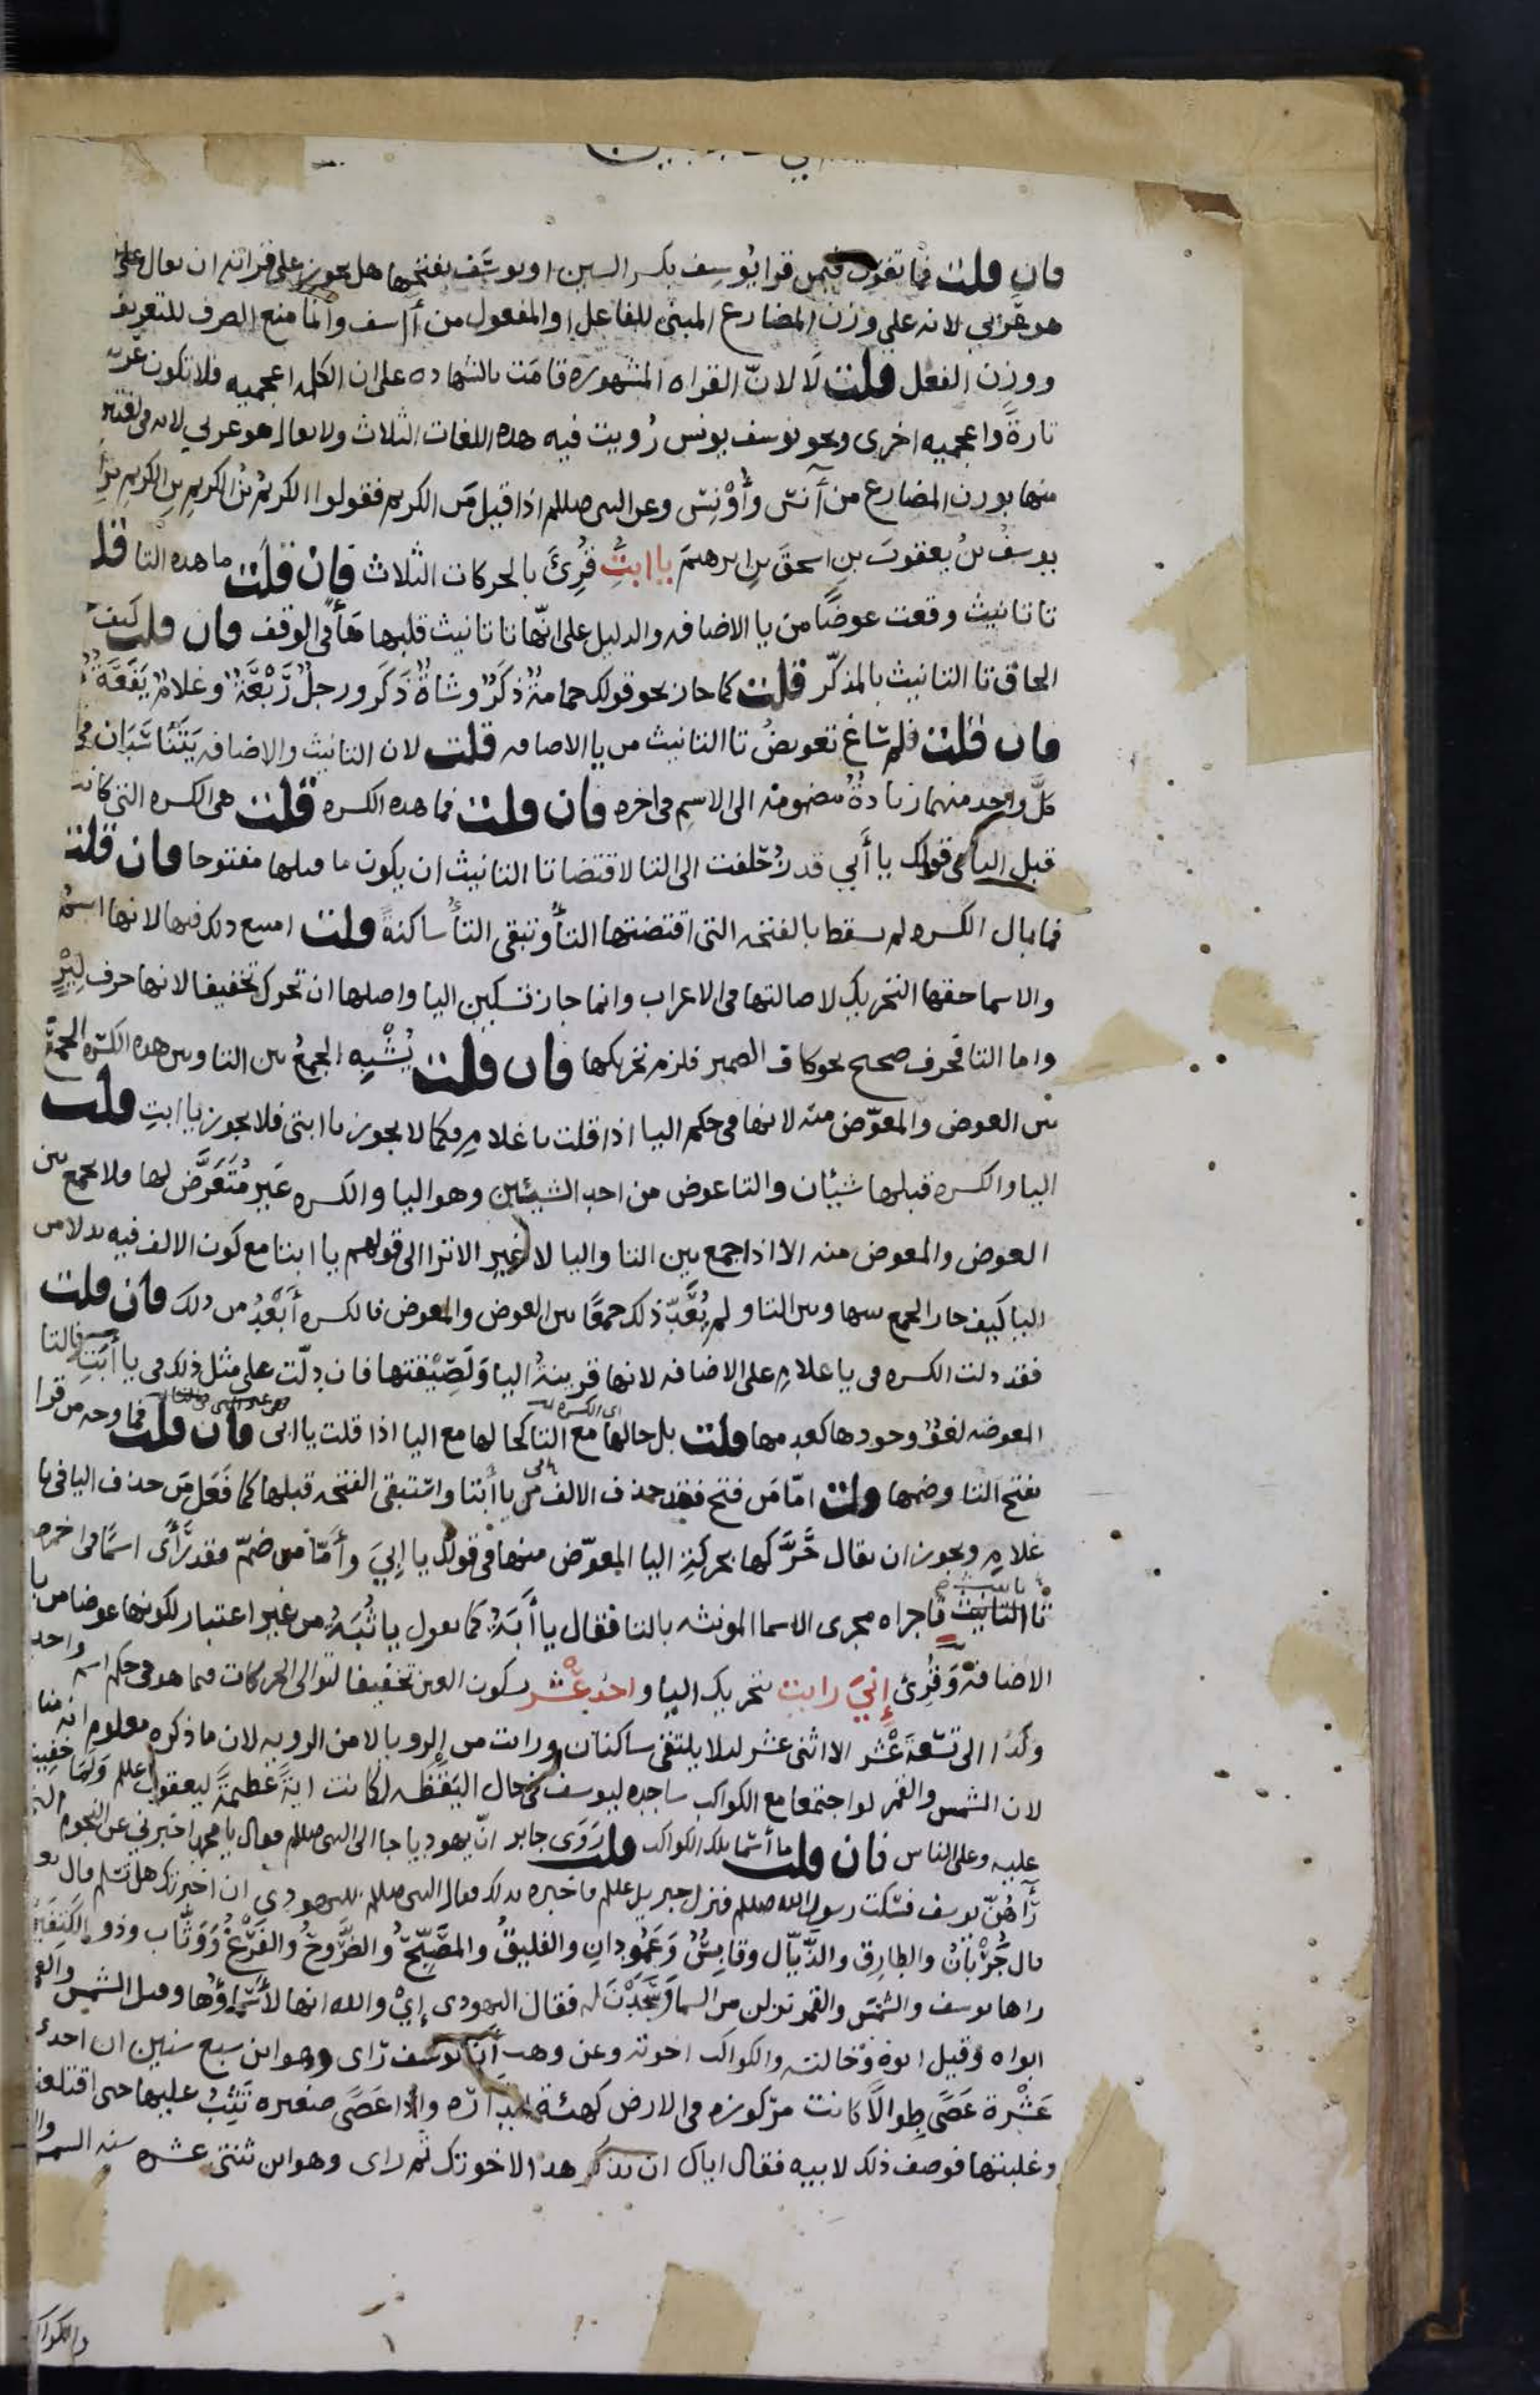 فان قلت فما تقول فيمن قرا يُوسِف بكسر السين او يوسَف بفتحها هل يجوز على قراته ان يقال
هو عربي لانه على وزن المضارع المبنى للفاعل او المفعول من آسف وانما منع الصرف للتعريف
ووزن الفعل قلت لا لانّ القراه المشهوره قامَت بالشهاده على ان الكلمه اعجميه فلا تكون عربيه
تارةً واعجميه اخرى ونحو يوسف يونس رُويت فيه هذه اللغات الثلاث ولا يقال هو عربي لانه فى لغتين
منها بوزن المضارع من آنس وأَوْنِس وعن النبى صللم اذا قيل مَن الكريم فقولوا الكريمُ بنُ الكريمِ بنِ الكريمِ بنِ
يوسفُ بنُ يعقوبَ بنِ اسحقَ بنِ ابرهيمَ يا ابتِ قُرِئَ بالحركات الثلاث فان قلتَ ما هذه التا قلت
تا تانيث وقعت عوضًا من يا الاضافه والدليل على انّها تا تانيث قلبها هاً فى الوقف فان قلت كيف
الحاق تا التانيث بالمذكّر قلت كما جاز نحو قولك حمامةٌ ذكَرٌ وشاةٌ ذَكَر ورجلٌ رَبْعَةٌ وغلامٌ يَفَعَةٌ
فان قلت فلم ساغ تعويضُ تا التانيث من يا الاضافه قلت لان التانيث والاضافه يَتَناسَبَان فى
كلّ واحد منهما زيادةٌ مضمومه الى الاسم فى اخره فان قلت فما هذه الكسره قلت هى الكسره التى كانت
قبل اليا فى قولك يا أَبي قد زُحلفت الى التا لاقتضا تا التانيث ان يكون ما قبلها مفتوحا فان قلت
فما بال الكسره لم تسقط بالفتحه التى اقتضتها التاُ وتبقى التاُ ساكنةً قلت امتنع ذلك فيها لانها اسمٌ
والاسما حقها التحريك لاصالتها فى الاعراب وانما جاز تسكين اليا واصلها ان تحرك تخفيفا لانها حرف لِيْنٍ
واما التا فحرف صحيح نحو كاف الضمير فلزم تحريكها فان قلت يُشْبِه الجمعُ بين التا وبين هذه الكسره الجمعَ
بين العوض والمعوّض منه لانها فى حكم اليا اذا قلت يا غلامِ فكما لا يجوز يا ابتى فلا يجوز يا ابتِ قلت
اليا والكسره قبلها شيئان والتا عوض من احد الشيئين وهو اليا والكسره غير مُتَعَرَّض لها فلا يجمع بين
العوض والمعوض منه الا اذا جمع بين التا واليا لا غير الا ترا الى قولهم يا ابتا مع كون الالف فيه بدلا من
اليا كيف جاز الجمع بينها وبين التا ولم يُعَدّ ذلك جمعًا بين العوض والمعوض فالكسره أَبْعَدُ من ذلك فان قلت
فقد دلت الكسره فى يا غلامِ على الاضافه لانها قرينةُ اليا ولَصِيْقتها فان دلّت على مثل ذلك فى يا أَبَتِ فالتا
المعوضه لغوٌ وجودها كعدمها قلت بل حالها مع التا كحالها مع اليا اذا قلت يا ابى فان قلت فما وجه من قرا
بفتح التا وضمها قلت امّا مَن فتح فقد حذف الالف من يا أَبتا واستبقى الفتحه قبلها كما فَعَل مَن حذف اليا فى يا
غلامِ ويجوز ان يقال حَرَّكها بحركةِ اليا المعوّض منها فى قولك يا ابِيَ وأَمّا من ضمّ فقد رَأَى اسمًا فى اخره
تا التانيث فاجراه مجرى الاسما المونثه بالتا فقال يا أَبَتُ كما تقول يا ثُبَةُ من غير اعتبار لكونها عوضا من يا
الاضافة وَقُرِئ إِنِّيَ رايت بتحريك اليا واحد عْشر بسكون العين تخفيفا لتوالى الحركات فيما هو فى حكم اسم واحد
وكذا الى تسعةَ عْشَر الا اثنى عشر ليلا يلتقى ساكنان ورايت من الرويا لا من الرويه لان ما ذكره معلوم انه منا
لان الشمس والقمر لو اجتمعا مع الكواكب ساجده ليوسف فى حال اليقظه لكانت ايةً عَظيمةً ليعقوب علىلم ولما خَفِيت
عليه وعلى الناس فان قلت ما أسما تلك الكواكب قلت رَوَى جابر انّ يهوديا جا الى النبى صللم فقال يا محمد اخبرنى عن النجوم التى
رَآهُنّ يوسف فسكت رسول الله صللم فنزل جبريل علىلم فاخبره بذلك فقال النبى صللم لليهودى ان اخبرتك هل تسلم قال نعم
قال جُرْبَانُ والطارق والذَّيّال وقابِسُ وَعَمُودانِ والفليقُ والمصَبِّحُ والضَّروحُ والفَرْغُ ووَثّاب وذو الكَتِفَيْنِ
راها يوسف والشمسَ والقمر نزلن من السما وسَجَدْنَ له فقال اليهودى إِيْ والله انها لَأَسْماؤُها وقيل الشمس والقمر
ابواه وقيل ابوه وخالته والكواكب اخوته وعن وهب أَنّ يوسف رَاى وهو ابن سبع سنين ان احدى
عَشْرة عَصًى طِوالًا كانت مركوزه فى الارض كهيئة الدّاره واذا عَصًى صغيره تَثِبُ عليها حتى اقتلعتها
وغلبتها فوصف ذلك لابيه فقال اياك ان تذكر هذا لاخوتك ثم راى وهو ابن ثنتى عشره سنه الشمس
والكواكب